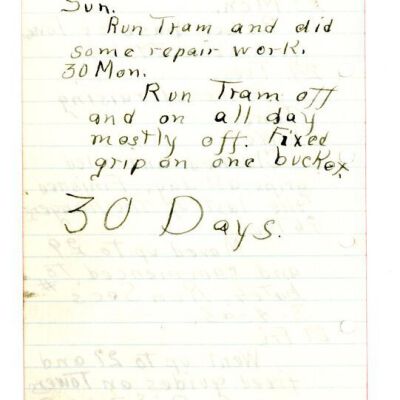 Sun.
Run Tram and did
some repair work.
30 Mon.
Run Tram off
and on all day
mostly off. Fixed
grip on one bucket.
30 Days.